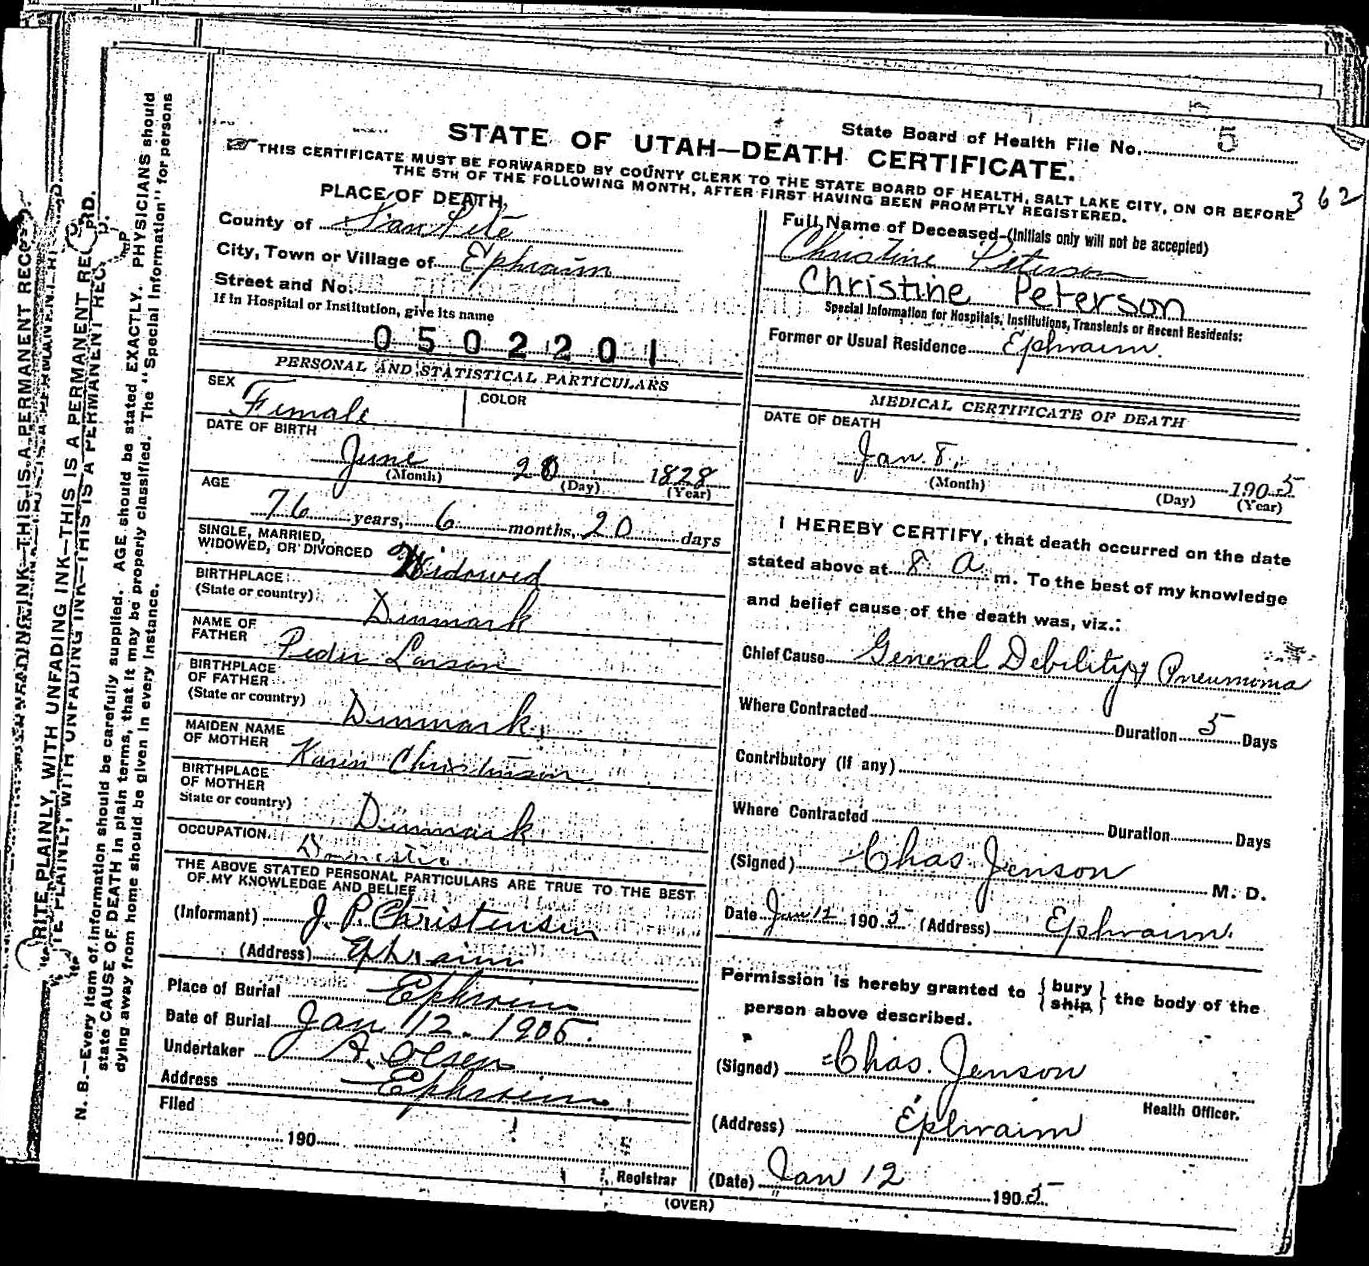 State Board of Health File No. 5
STATE OF UTAH—DEATH CERTIFICATE.
362
THIS CERTIFICATE MUST BE FORWARDED BY COUNTY CLERK TO THE STATE BOARD OF HEALTH, SALT LAKE CITY, ON OR BEFORE
THE 5TH OF THE FOLLOWING MONTH, AFTER FIRST HAVING BEEN PROMPTLY REGISTERED.
PLACE OF DEATH,
County of SanPete
City, Town or Village of Ephraim
Street and No.
If in Hospital or Institution, give its name
0502201
PERSONAL AND STATISTICAL PARTICULARS
SEX Female COLOR
DATE OF BIRTH
June 20 1828
(Month) (Day) (Year)
AGE
76 years, 6 months, 20 days
SINGLE, MARRIED,
WIDOWED, OR DIVORCED Widowed
BIRTHPLACE
(State or country) Denmark
NAME OF
FATHER Peder Larson
BIRTHPLACE
OF FATHER
(State or country) Denmark
MAIDEN NAME
OF MOTHER Karen Christenson
BIRTHPLACE
OF MOTHER
State or country) Denmark
OCCUPATION. Domestic
THE ABOVE STATED PERSONAL PARTICULARS ARE TRUE TO THE BEST
OF MY KNOWLEDGE AND BELIEF
(Informant) J. P. Christensen
(Address) Ephraim
Place of Burial Ephraim
Date of Burial Jan 12. 1905.
Undertaker A. Olsen
Address Ephraim
Filed
190
Registrar
Full Name of Deceased (Initials only will not be accepted)
Christine Peterson
Christine Peterson
Special Information for Hospitals, Institutions, Transients or Recent Residents:
Former or Usual Residence Ephraim.
MEDICAL CERTIFICATE OF DEATH
DATE OF DEATH
Jan. 8. 1905
(Month) (Day) (Year)
I HEREBY CERTIFY, that death occurred on the date
stated above at 8 a m. To the best of my knowledge
and belief cause of the death was, viz.:
Chief Cause General Debility & Pneumonia
Where Contracted Duration 5 Days
Contributory (if any)
Where Contracted Duration Days
(Signed) Chas. Jenson M. D.
Date Jan 12 1905 (Address) Ephraim.
Permission is hereby granted to { bury ship } the body of the
person above described.
(Signed) Chas. Jenson
Health Officer.
(Address) Ephraim
(Date) Jan 12 1905
(OVER)
WRITE PLAINLY, WITH UNFADING INK—THIS IS A PERMANENT RECORD.
N. B.—Every item of information should be carefully supplied. AGE should be stated EXACTLY. PHYSICIANS should
state CAUSE OF DEATH in plain terms, that it may be properly classified. The "Special Information" for persons
dying away from home should be given in every instance.